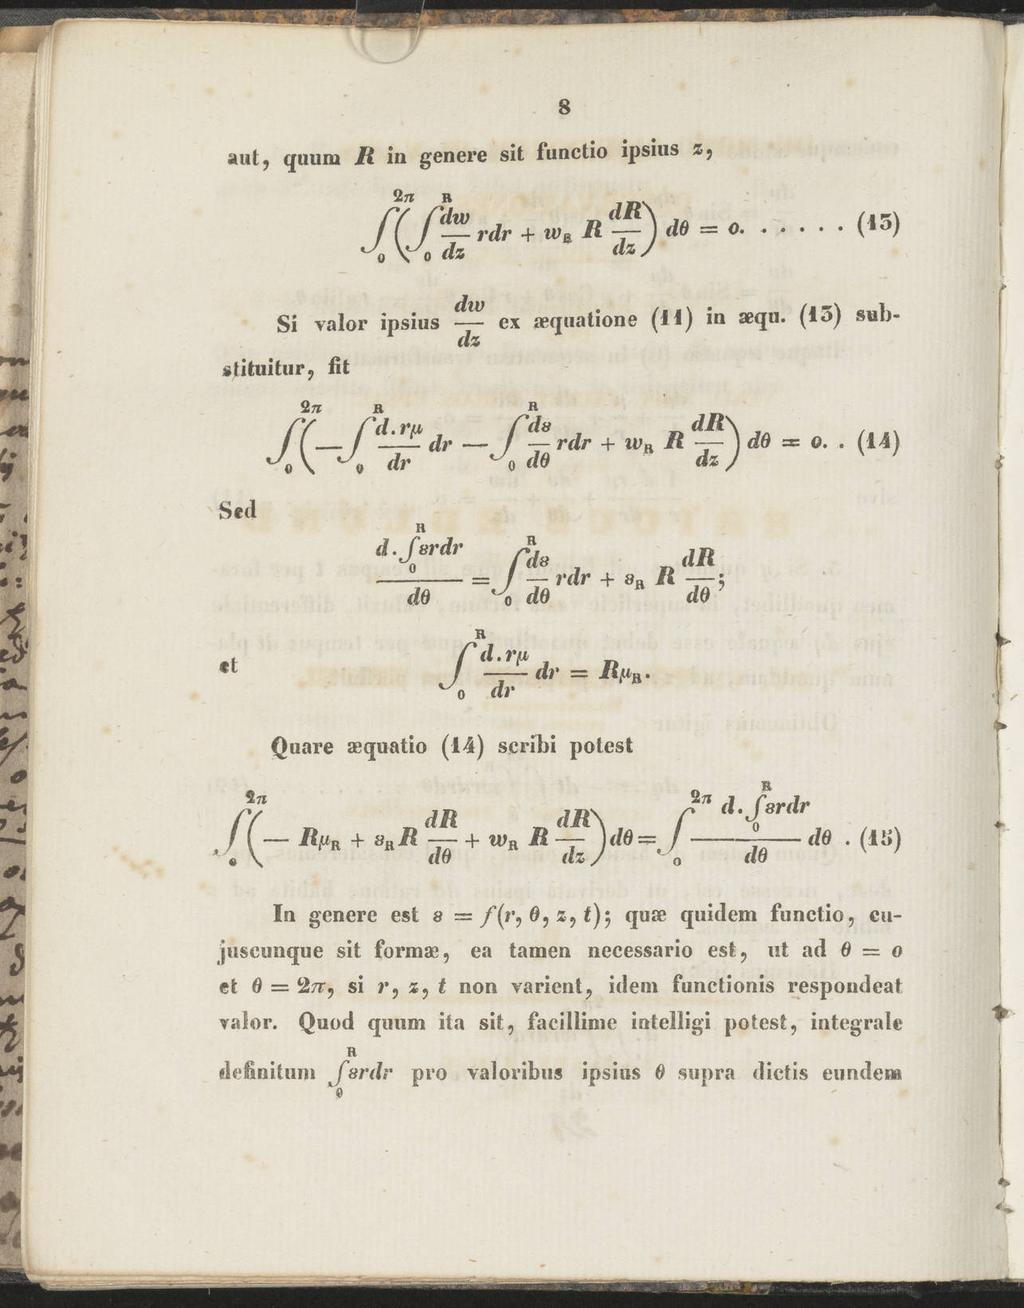 8
aut, quum R in genere sit functio ipsius z,
∫₀^{2π} ( ∫₀^R dw/dz rdr + w_R R dR/dz ) dθ = o. . . . . . (13)
Si valor ipsius dw/dz ex æquatione (11) in æqu. (13) sub-
stituitur, fit
∫₀^{2π} ( — ∫₀^R d.rμ/dr dr — ∫₀^R ds/dθ rdr + w_R R dR/dz ) dθ = o. . (14)
Sed
d.∫₀^R srdr / dθ = ∫₀^R ds/dθ rdr + s_R R dR/dθ;
et ∫₀^R d.rμ/dr dr = Rμ_R.
Quare æquatio (14) scribi potest
∫₀^{2π} ( — Rμ_R + s_R R dR/dθ + w_R R dR/dz ) dθ = ∫₀^{2π} d.∫₀^R srdr / dθ dθ . (15)
In genere est s = f(r, θ, z, t); quæ quidem functio, cu-
juscunque sit formæ, ea tamen necessario est, ut ad θ = o
et θ = 2π, si r, z, t non varient, idem functionis respondeat
valor. Quod quum ita sit, facillime intelligi potest, integrale
definitum ∫₀^R srdr pro valoribus ipsius θ supra dictis eundem